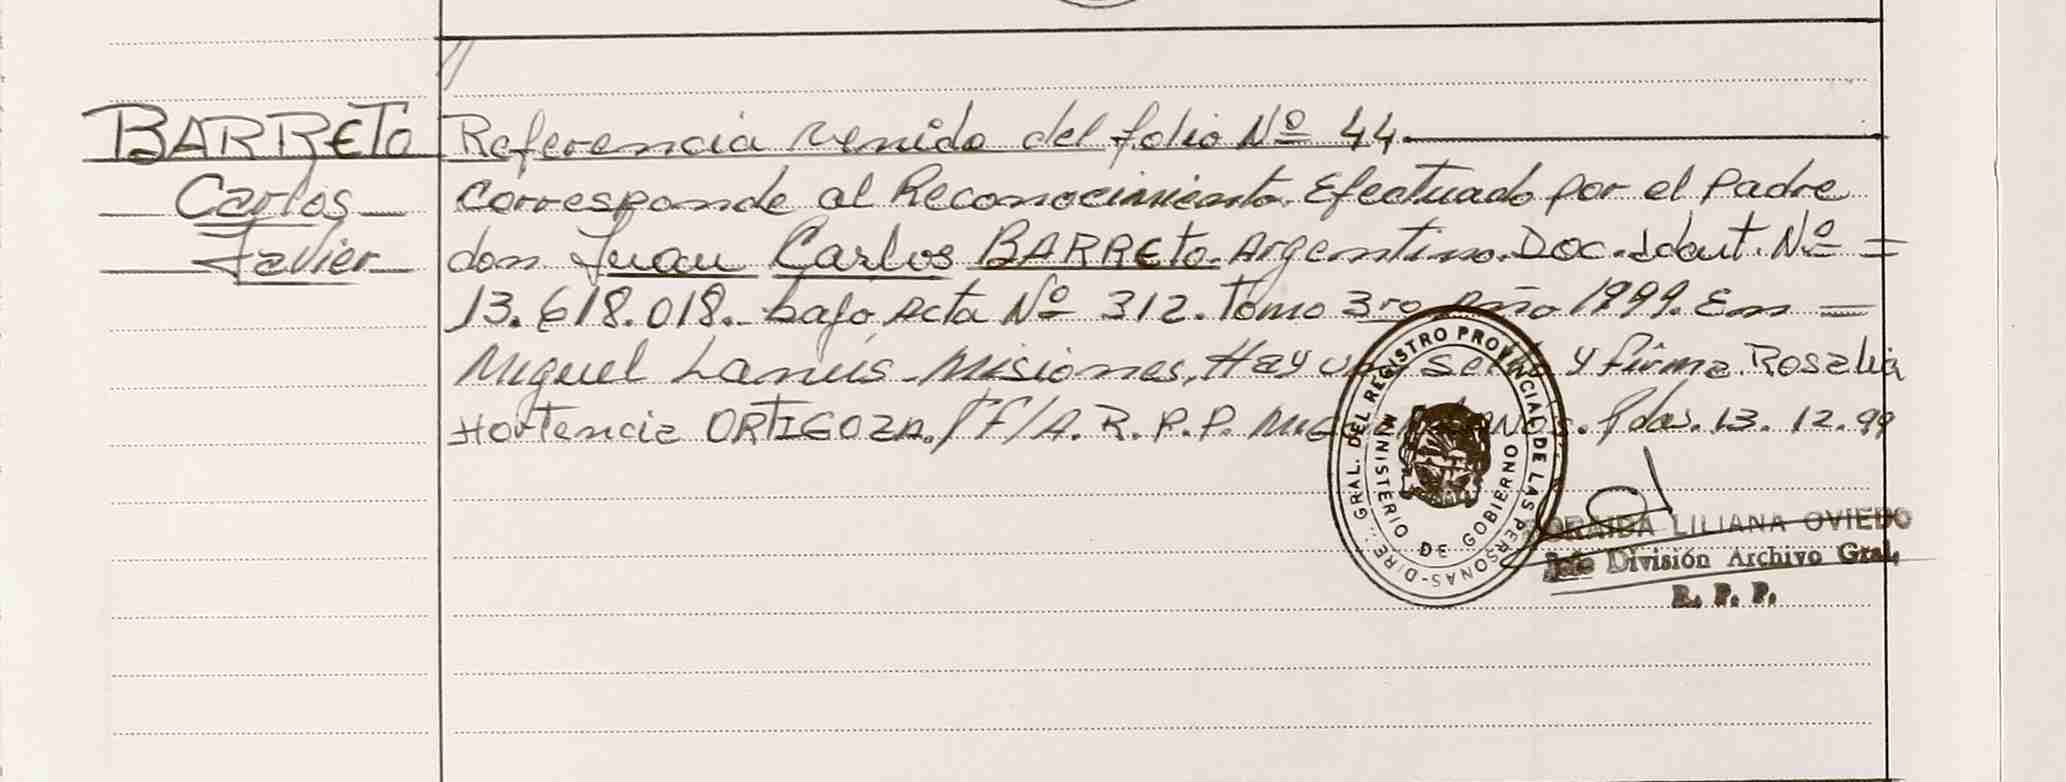 BARRETO
Carlos
Javier
Referencia venido del folio Nº 44.
Corresponde al Reconocimiento. Efectuado por el Padre
don Juan Carlos BARRETO. Argentino. Doc. Ident. Nº =
13.618.018. bajo Acta Nº 312. Tomo 3ro Año 1999. En =
Miguel Lanús - Misiones, Hay un sello y firma Rosalia
Hortencia ORTIGOZA. /F/A. R. P. P. Pdas. 13. 12. 99
DIREC. GRAL. DEL REGISTRO PROVINCIAL DE LAS PERSONAS-
MINISTERIO DE GOBIERNO
LILIANA OVIEDO
Jefe División Archivo Gral.
R. P. P.